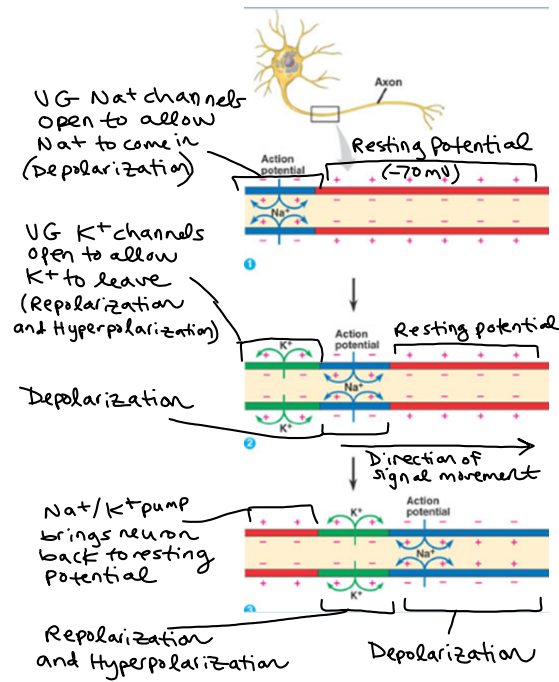 Axon
VG Na+ channels
open to allow
Na+ to come in
(Depolarization)
Resting Potential
(-70 mV)
Action
potential
- - + + + + + +
+ + - - - - - -
Na+
+ + - - - - - -
- - + + + + + +
1
VG K+ channels
open to allow
K+ to leave
(Repolarization
and Hyperpolarization)
Action
potential
Resting potential
K+
+ + - - + + + +
- - + + - - - -
Na+
- - + + - - - -
+ + - - + + + +
K+
Depolarization
2
Direction of
signal movement
Na+/K+ pump
brings neuron
back to resting
potential
Action
potential
K+
+ + + + - - - -
- - - - + + + +
Na+
- - - - + + + +
+ + + + - - - -
K+
3
Repolarization
and Hyperpolarization
Depolarization